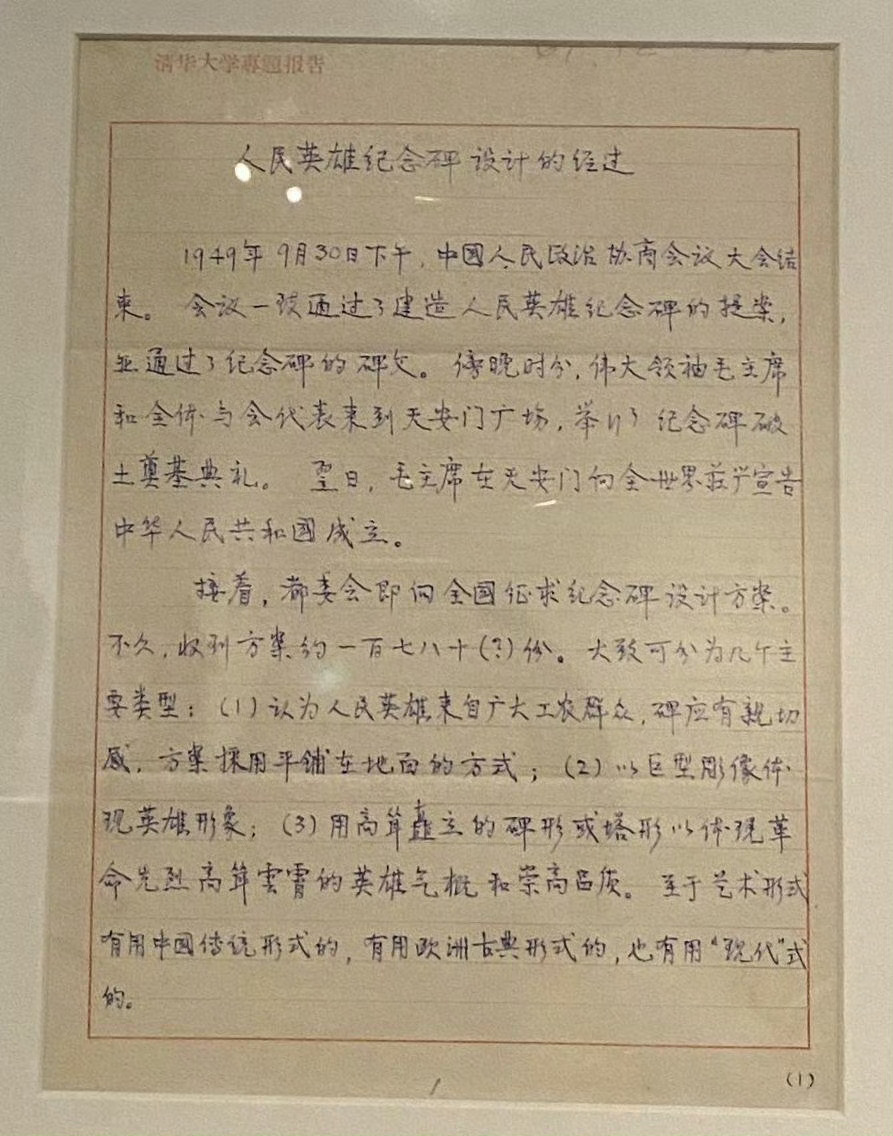 清华大学專题报告
人民英雄纪念碑设计的经过
1949年9月30日下午，中國人民政治协商会议大会结
束。会议一致通过了建造人民英雄纪念碑的提案，
並通过了纪念碑的碑文。傍晚时分，伟大领袖毛主席
和全体与会代表来到天安门广场，举行了纪念碑破
土奠基典礼。翌日，毛主席在天安门向全世界莊严宣告
中华人民共和國成立。
接着，都委会即向全国征求纪念碑设计方案。
不久，收到方案约一百七八十(？)份。大致可分为几个主
要类型：(1)认为人民英雄来自广大工农群众，碑应有親切
感，方案採用平铺在地面的方式；(2)以巨型彫像体
现英雄形象；(3)用高耸矗立的碑形或塔形以体现革
命先烈高耸雲霄的英雄气概和崇高品质。至于艺术形式
有用中國传统形式的，有用欧洲古典形式的，也有用“现代”式
的。
(1)